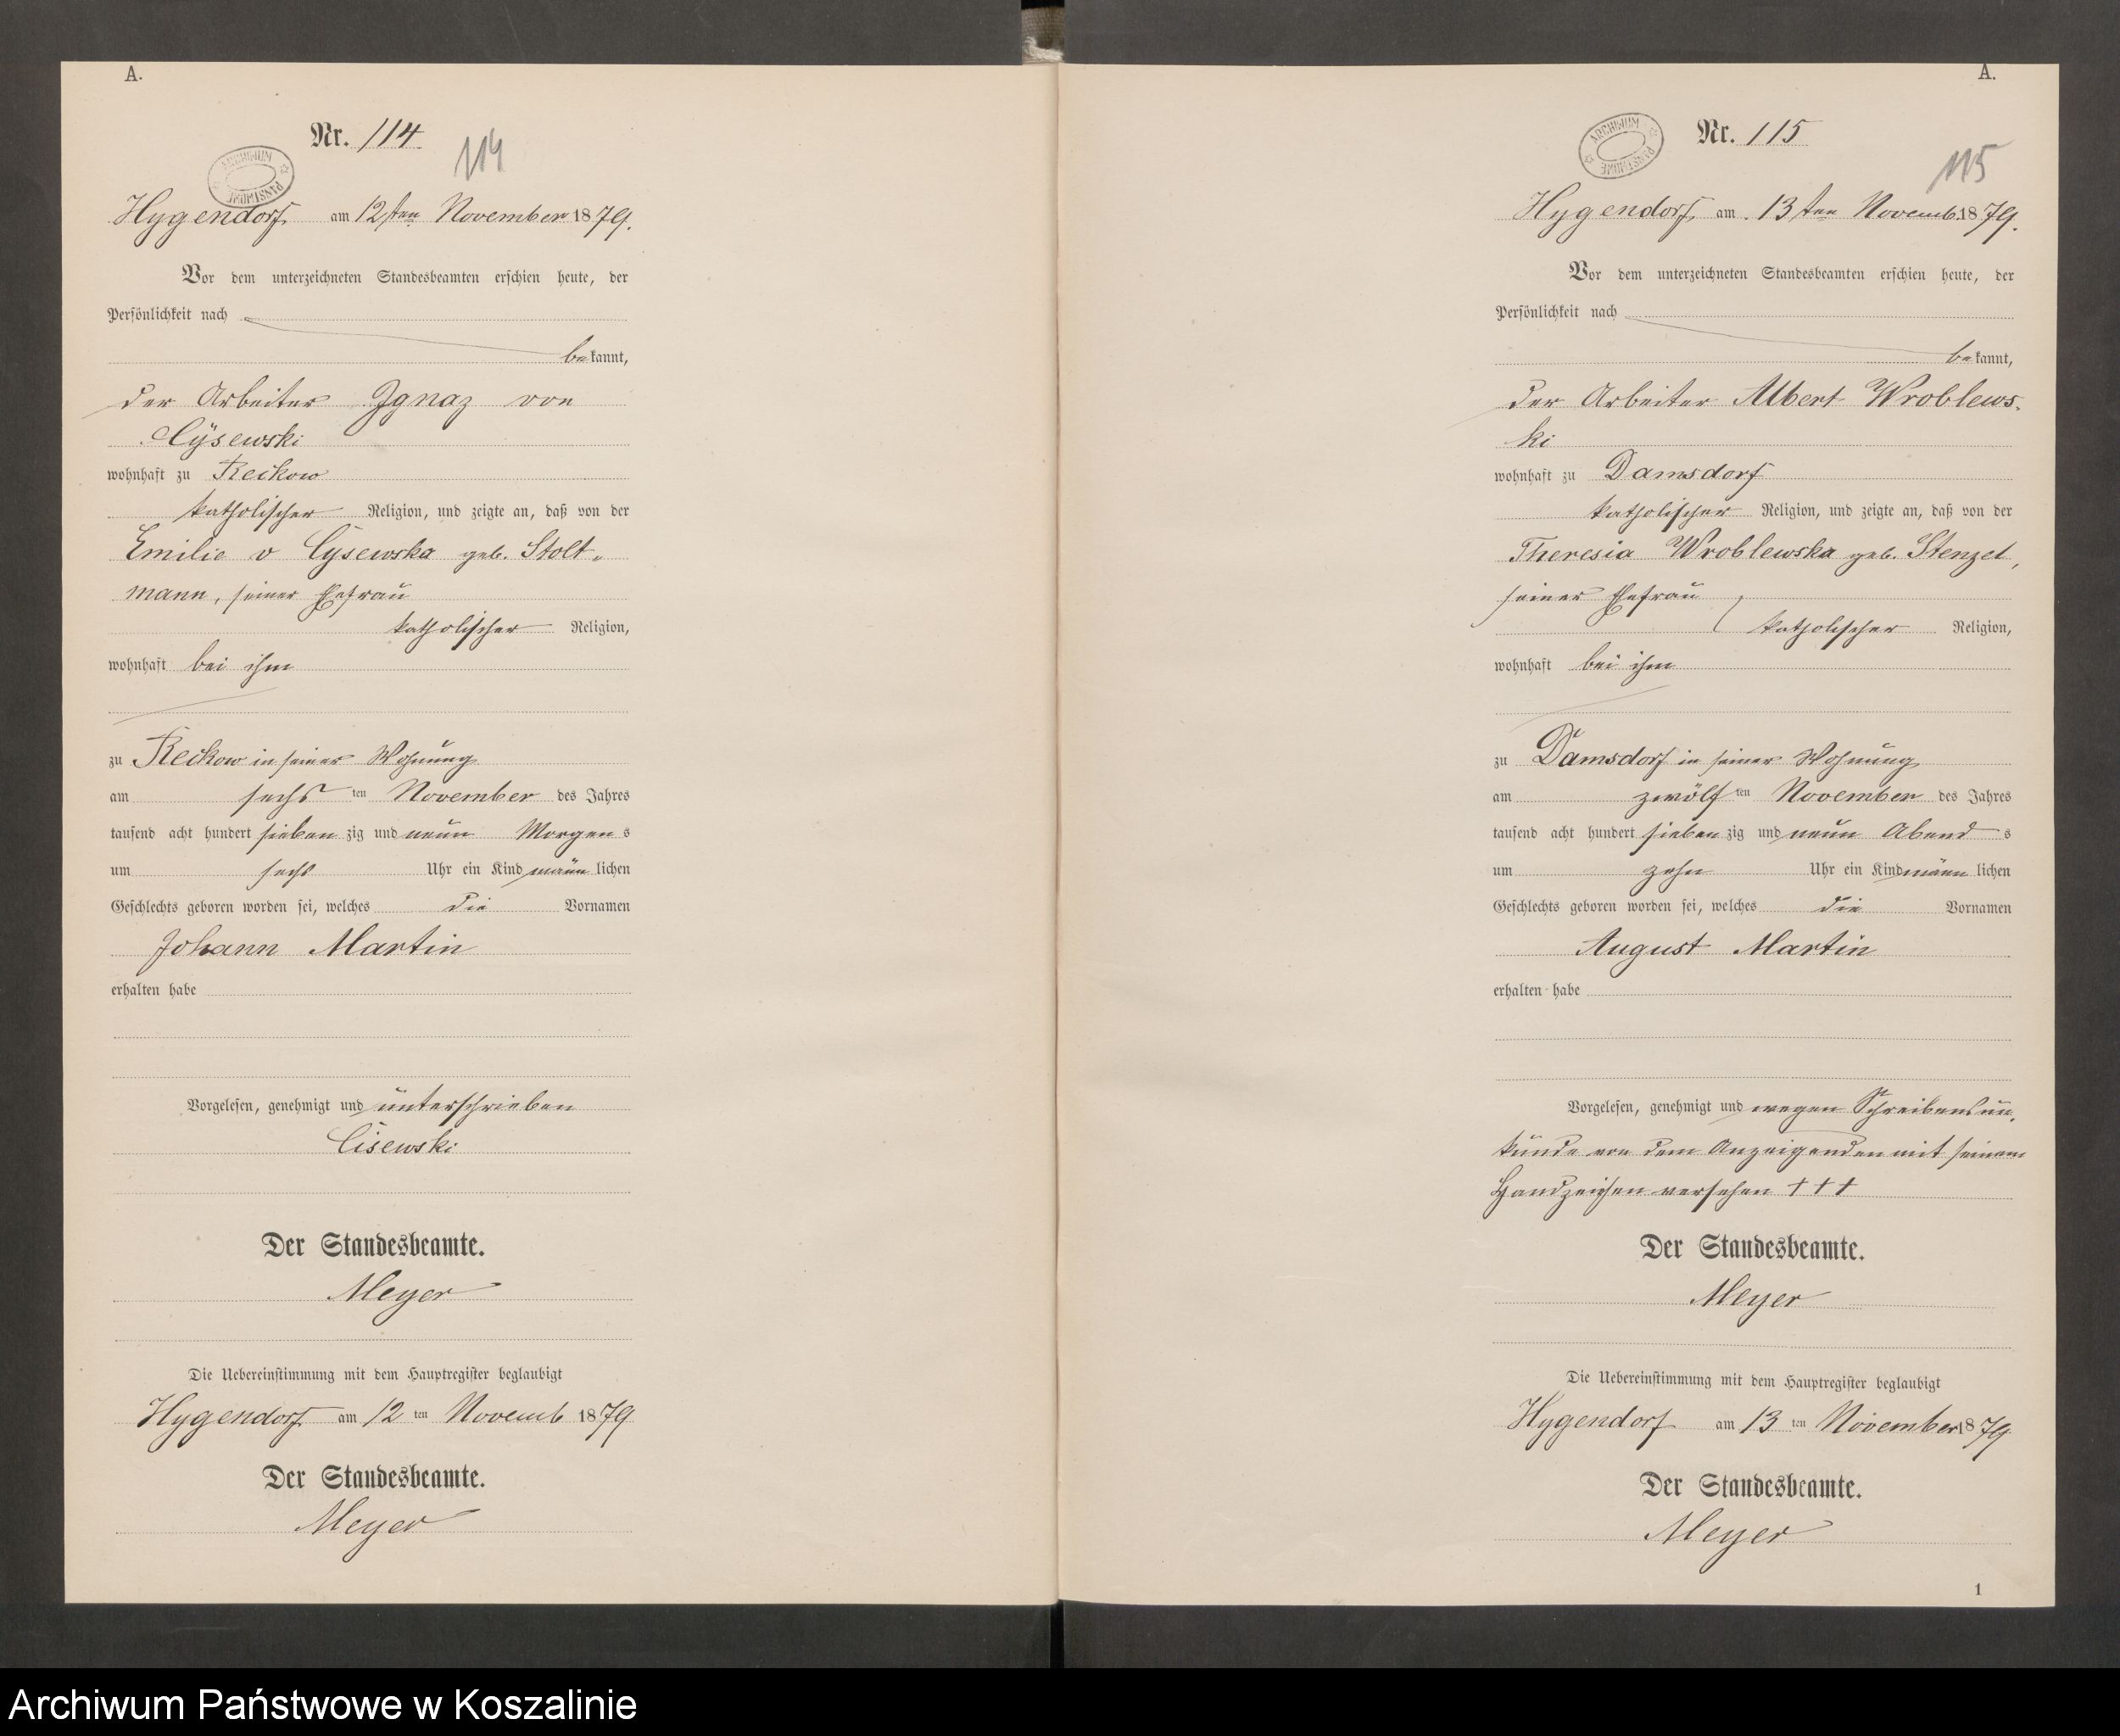 A.
Nr. 114
114
ARCHIWUM PAŃSTWOWE
Hygendorf am 12ten November 1879.
Vor dem unterzeichneten Standesbeamten erschien heute, der
Persönlichkeit nach
bekannt,
der Arbeiter Ignaz von
Cysewski
wohnhaft zu Reckow
katholischer Religion, und zeigte an, daß von der
Emilie v Cysewska geb. Stolt-
mann, seiner Ehefrau
katholischer Religion,
wohnhaft bei ihm
zu Reckow in seiner Wohnung
am sechsten November des Jahres
tausend acht hundert siebenzig und neun Morgens
um sechs Uhr ein Kind männlichen
Geschlechts geboren worden sei, welches die Vornamen
Johann Martin
erhalten habe
Vorgelesen, genehmigt und unterschrieben
Cisewski
Der Standesbeamte.
Meyer
Die Uebereinstimmung mit dem Hauptregister beglaubigt
Hygendorf am 12ten Novemb 1879
Der Standesbeamte.
Meyer
A.
Nr. 115
115
ARCHIWUM PAŃSTWOWE
Hygendorf am 13ten Novemb. 1879.
Vor dem unterzeichneten Standesbeamten erschien heute, der
Persönlichkeit nach
bekannt,
der Arbeiter Albert Wroblews-
ki
wohnhaft zu Damsdorf
katholischer Religion, und zeigte an, daß von der
Theresia Wroblewska geb. Stenzel,
seiner Ehefrau
katholischer Religion,
wohnhaft bei ihm
zu Damsdorf in seiner Wohnung
am zwölften November des Jahres
tausend acht hundert siebenzig und neun Abends
um zehn Uhr ein Kind männlichen
Geschlechts geboren worden sei, welches die Vornamen
August Martin
erhalten habe
Vorgelesen, genehmigt und wegen Schreibensun-
kunde von dem Anzeigenden mit seinem
Handzeichen versehen +++
Der Standesbeamte.
Meyer
Die Uebereinstimmung mit dem Hauptregister beglaubigt
Hygendorf am 13ten November 1879
Der Standesbeamte.
Meyer
1
Archiwum Państwowe w Koszalinie